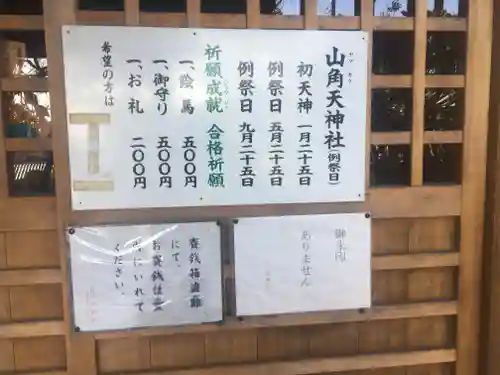 山角天神社(例祭日)
初天神 一月二十五日
例祭日 五月二十五日
例祭日 九月二十五日
祈願成就 合格祈願
一、絵馬 五〇〇円
一、御守り 五〇〇円
一、お札 二〇〇円
希望の方は
御朱印
ありません
賽銭箱盗難
にて、
お賽銭は
にいれて
ください。